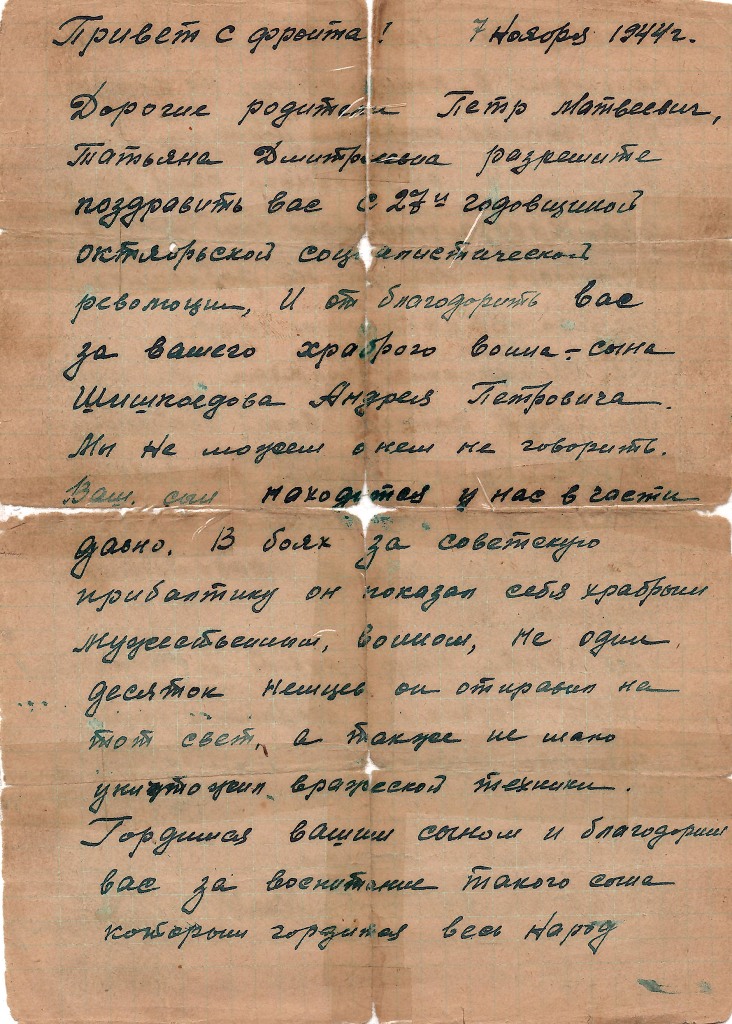 Привет с фронта! 7 Ноября 1944 г.
Дорогие родители Петр Матвеевич,
Татьяна Дмитриевна разрешите
поздравить вас с 27й годовщиной
октябрьской социалистической
революции, И от благодорить вас
за вашего храброго воина-сына
Шишкоедова Андрея Петровича.
Мы не можем о нем не говорить.
Ваш сын находится у нас в части
давно. В боях за советскую
прибалтику он показал себя храбрым
мужественным, воином, не один
десяток немцев он отправил на
тот свет, а также не мало
уничтожил вражеской техники.
Гордимся вашим сыном и благодорим
вас за воспитание такого сына
которым гордится весь Народ